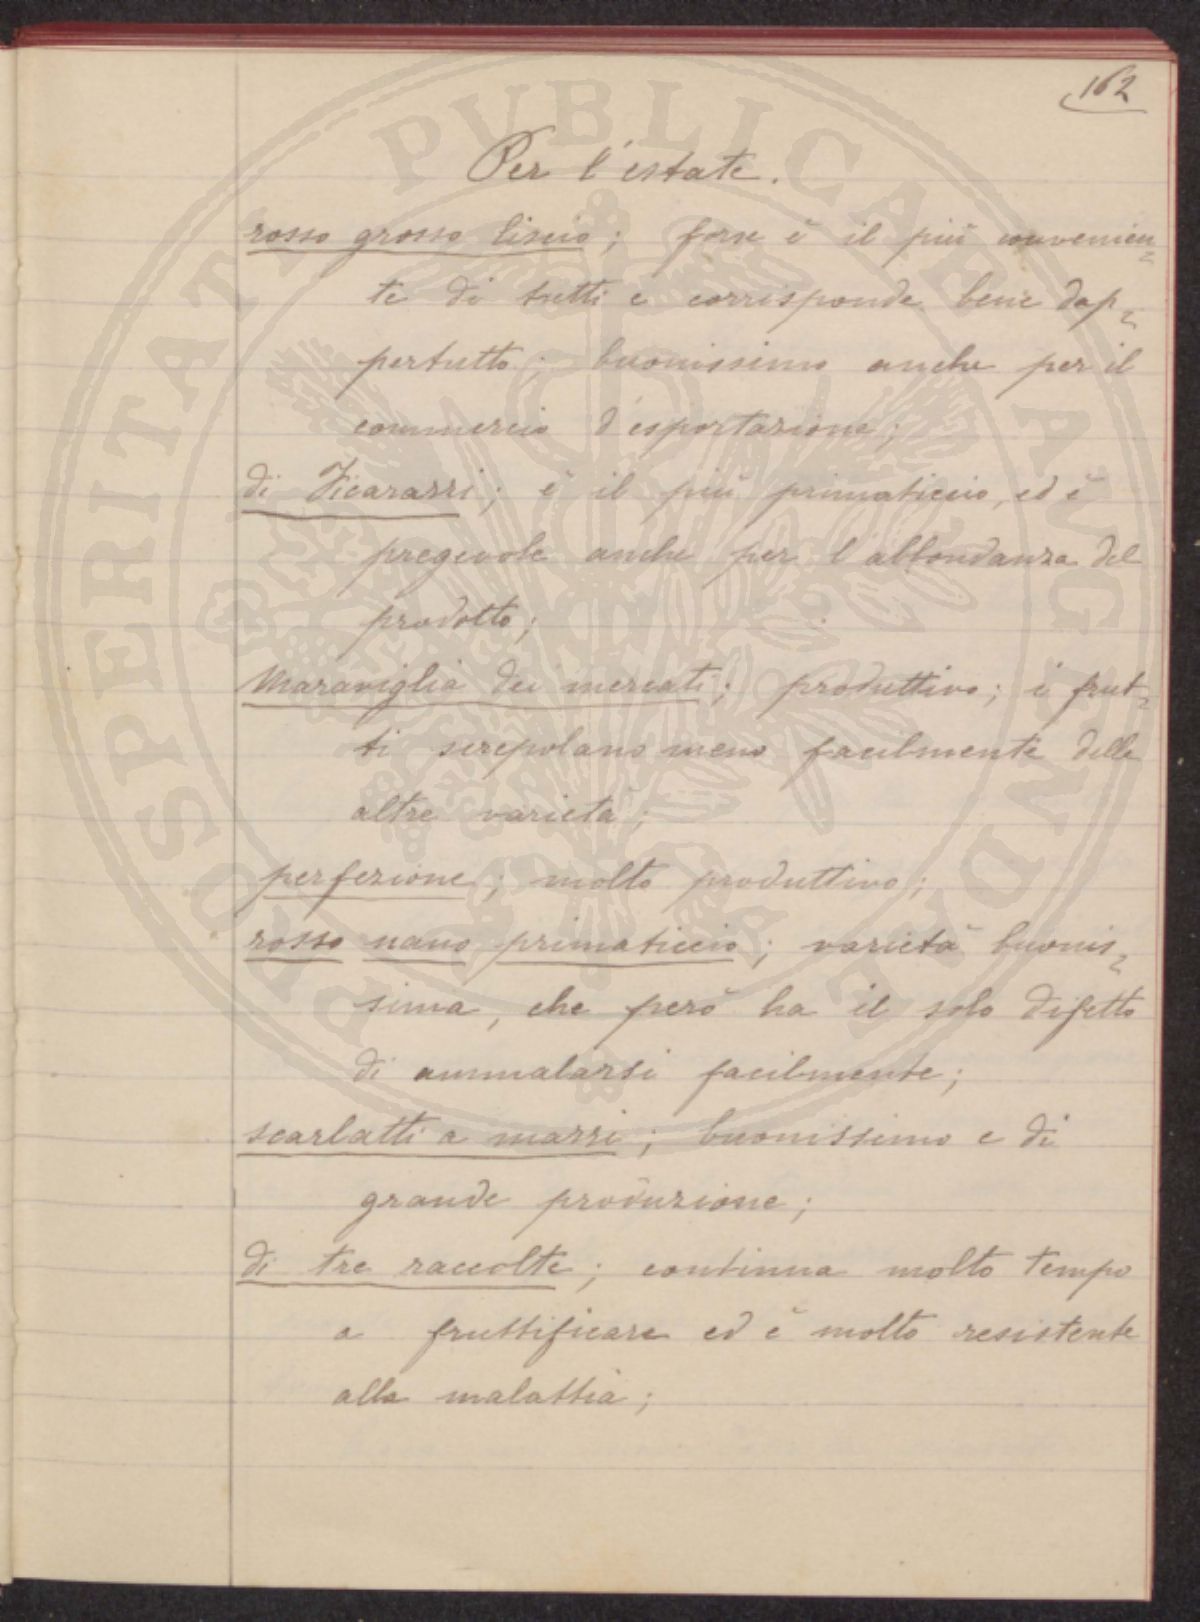 162
Per l'estate.
rosso grosso liscio; forse è il più convenien=
te di tutti e corrisponde bene dap=
pertutto; buonissimo anche per il
commercio d'esportazione;
di Ficarazzi; è il più primaticcio, ed è
pregevole anche per l'abbondanza del
prodotto;
Maraviglia dei mercati; produttivo; i frut=
ti screpolano meno facilmente delle
altre varietà;
perfezione; molto produttivo;
rosso nano primaticcio; varietà buonis=
sima, che però ha il solo difetto
di ammalarsi facilmente;
scarlatti a mazzi; buonissimo e di
grande produzione;
di tre raccolte; continua molto tempo
a fruttificare ed è molto resistente
alla malattia;
PROSPERITATI PUBLICAE AUGENDAE